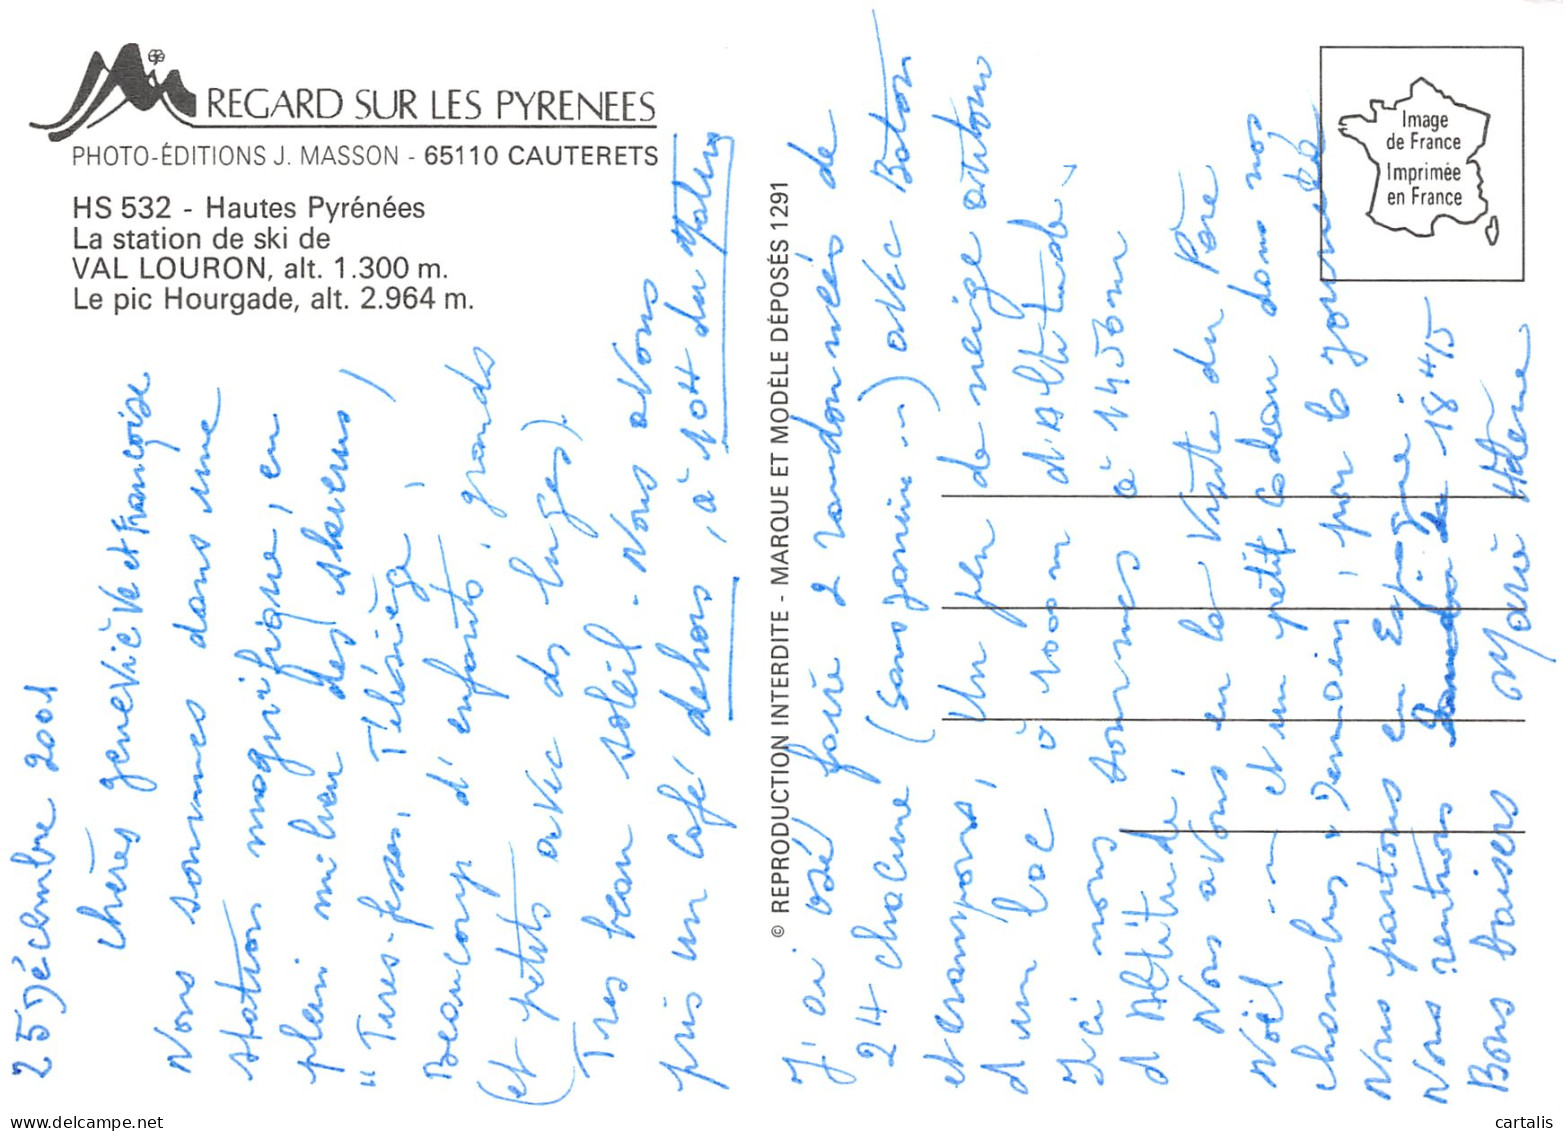 REGARD SUR LES PYRENEES
PHOTO-ÉDITIONS J. MASSON - 65110 CAUTERETS
HS 532 - Hautes Pyrénées
La station de ski de
VAL LOURON, alt. 1.300 m.
Le pic Hourgade, alt. 2.964 m.
25 Décembre 2001
chères geneviève et Françoise
Nous sommes dans une
station magnifique, en
plein milieu des skieurs /
"Tires-fesses, Télésiège,
Beaucoup d'enfants, grands
(et petits avec ds luges).
Tres beau soleil - Nous avons
pris un café dehors, à 10H du Matin
© REPRODUCTION INTERDITE - MARQUE ET MODÈLE DÉPOSÉS 1291
Image
de France
Imprimée
en France
J'ai osé faire 2 randonnées de
24 chacune (sans ) avec Baton
et crampons, Un peu de neige autour
d'un lac à m d'Altitude.
Ici nous sommes à 1450m
d'Altitude,
Nous avons eu la Visite du Père
Noël -- et un petit Cadeau dans nos
chambres, Demain, pour la journée
Nous partons en Espagne
Nous rentrons 18H15
Bons baisers Marie Hélène
cartalis